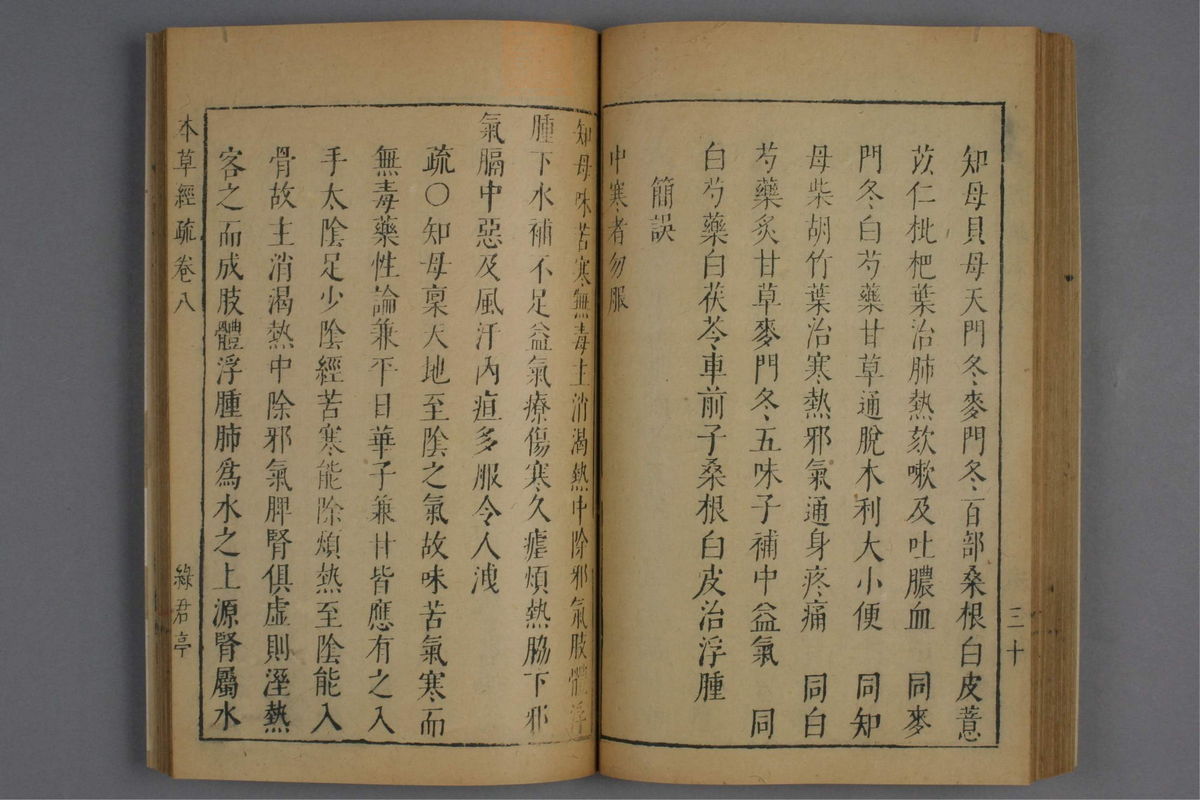 知母貝母天門冬麥門冬百部桑根白皮薏
苡仁枇杷葉治肺熱欬嗽及吐膿血　同麥
門冬白芍藥甘草通脫木利大小便　同知
母柴胡竹葉治寒熱邪氣通身疼痛　同白
芍藥炙甘草麥門冬五味子補中益氣　同
白芍藥白茯苓車前子桑根白皮治浮腫
簡誤
中寒者勿服
三十
知母味苦寒無毒主消渴熱中除邪氣肢體浮
腫下水補不足益氣療傷寒久瘧煩熱脇下邪
氣膈中惡及風汗內疸多服令人洩
疏〇知母稟天地至陰之氣故味苦氣寒而
無毒藥性論兼平日華子兼甘皆應有之入
手太陰足少陰經苦寒能除煩熱至陰能入
骨故主消渴熱中除邪氣脾腎俱虛則溼熱
客之而成肢體浮腫肺爲水之上源腎屬水
本草經疏卷八
綠君亭